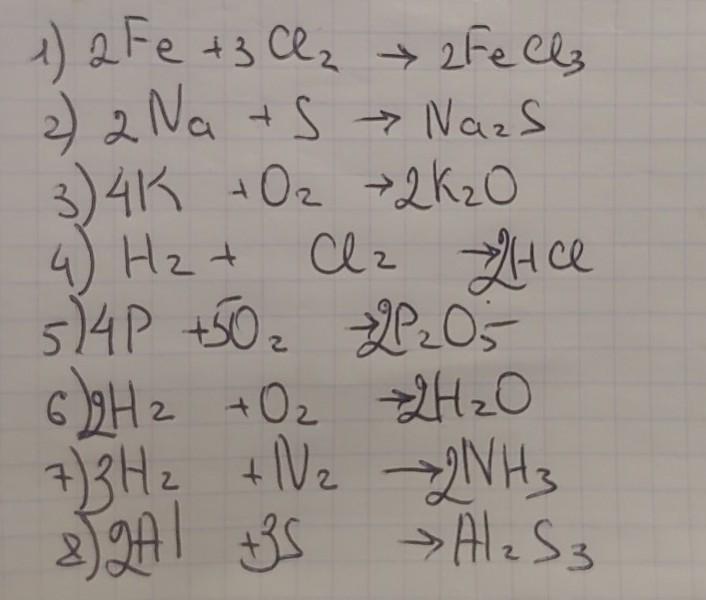 1) 2Fe + 3Cl₂ → 2FeCl₃
2) 2Na + S → Na₂S
3) 4K + O₂ → 2K₂O
4) H₂ + Cl₂ → 2HCl
5) 4P + 5O₂ → 2P₂O₅
6) 2H₂ + O₂ → 2H₂O
7) 3H₂ + N₂ → 2NH₃
8) 2Al + 3S → Al₂S₃